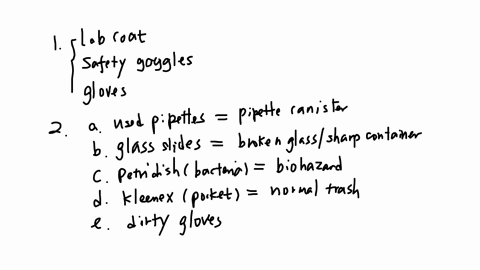 1. lab coat
safety goggles
gloves
2. a. used pipettes = pipette canister
b. glass slides = broken glass/sharp container
c. petridish (bacteria) = biohazard
d. kleenex (pocket) = normal trash
e. dirty gloves